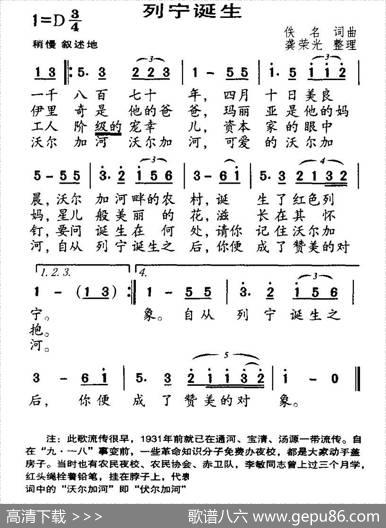 列宁诞生
1=D 3/4
佚名 词曲
稍慢 叙述地
龚荣光 整理
1 3 5· 3 2 2 3 1 - 5 5 5· 1 1 2
一千八百七十年，四月十日美良
伊里奇是他的爸，玛丽亚是他的妈
工人阶级的宠幸儿，资本家的眼中
沃尔加河沃尔加河，可爱的沃尔加
3 - 5 5 3· 2 1 5 6 3 - 6 1 5· 2 2 1 3 2
晨，沃尔加河畔的农村，诞生了红色列
妈，星儿般美丽的花，滋长在其怀
钉，要问诞生在何处，请你记住沃尔加
河，自从列宁诞生之后，你便成了赞美的对
1.2.3. 4.
1 - (1 3) 1 - 5 5 3· 2 1 5 6
宁。象。自从列宁诞生之
抱。
河。
3 - 6 1 5· 2 1 1 3 2 1 - 0
后，你便成了赞美的对象。
注：此歌流传很早，1931年前就已在通河、宝清、汤源一带流传。自
在“九·一八”事变前，一些革命知识分子免费办夜校，都是大家动手盖
房子。当时也有农民夜校、农民协会、赤卫队，李敏同志曾上过三个月学，
红头绳栓着铅笔，挂在脖子上，代表
词中的“沃尔加河”即“伏尔加河”
高清下载：》》》 歌谱八六 www.gepu86.com